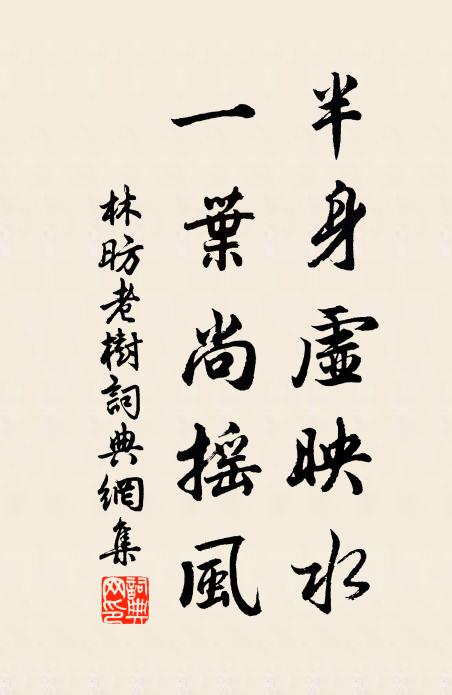 半身虛映水
一葉尚摇風
林昉老樹詞典網集
詞典網印